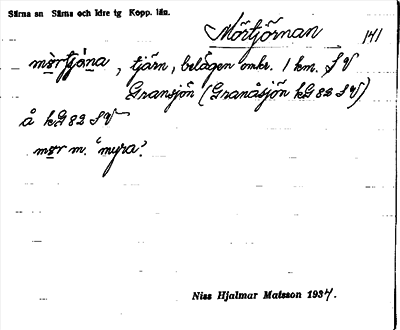 Särna sn Särna och Idre tg Kopp. län.
Mörtjörnan 141
mörtjäna, tjärn, belägen omkr. 1 km. S V
Gransjön (Granåsjön kG 82 S V)
å kG 82 S V
mor m. 'myra'.
Niss Hjalmar Matsson 1937.